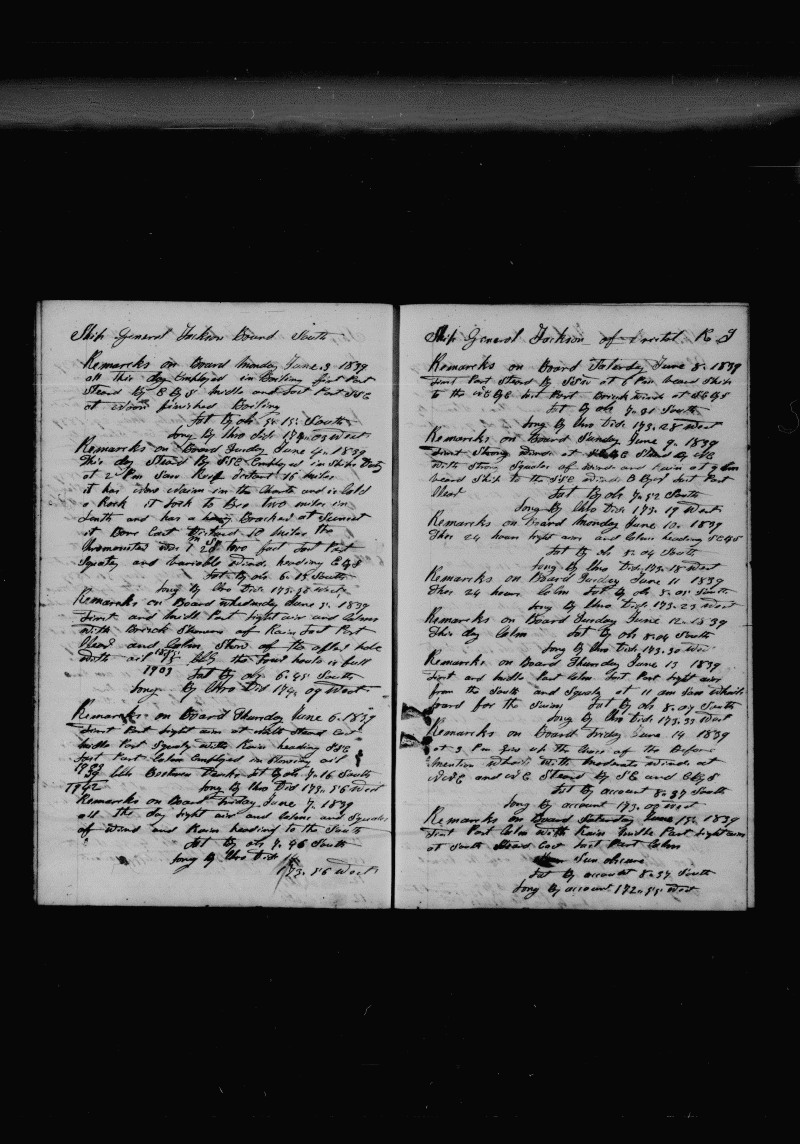 Ship General Jackson Bound South
Remarcks on Board Monday June 3 1839
all this day Employed in Boiling first Part
Steard By E By S Midle and Last Part SSE
at Noon finished Boiling
Lat By obs 5.. 15 South
Long By Chro Dist 174.. 03 West
Remarcks on Board Tuesday June 4.. 1839
This day Steard By SSE Employed in Ships Duty
at 2 Pm Saw Reef distant 15 miles
it has No in the Charts and is Cald
a Rock it Look to Be two miles in
Lenth and has a Breacker at
it Bore East Distance 10 Miles the
Chronometer was 1 28 two fast Last Part
Squaly and variable Winds heading E By S
Lat By obs 6.. 15 South
Long By Chro Dist 173..
Remarcks on Board Whednesday June 5.. 1839
First and Midle Part Light air and Calms
with Brisck Showers of Rain Last Part
Clear and Calm Stow of the after hole
with oil 1875 bbls the Lower hoale is full
1903 Lat By obs 6.. 45 South
Long By Chro Dist 174.. 09 West
Remarcks on Board Thursday June 6.. 1839
First Part Light air at South Stand East
Midle Part Squaly with Rain heading SSE
Last Part Calm Employed in Stowing oil
1903
39 bbls Between Decks Lat By obs 7.. 16 South
1942 Long By Chro Dist 173.. 56 West
Remarcks on Board Friday June 7.. 1839
all this day Light air and Calms and Squales
of Wind and Rain heading to the South
Lat By obs 7.. 46 South
Long By Chro Dist
173.. 56 West
Ship General Jackson of Bristol R I
Remarcks on Board Saturday June 8.. 1839
First Part Steard By SSW at 6 Pm weard Ship
to the Last Part Brisck Winds at SE By S
Lat By obs 7.. 31 South
Long By Chro Dist 173.. 28 West
Remarcks on Board Sunday June 9.. 1839
First Strong Winds at Steard By
With Strong Squales of Wind and Rain at 9 am
weard Ship to the SSE Winds E By S Last Part
Clear Lat By obs 7.. 52 South
Long By Chro Dist 173.. 19 West
Remarcks on Board Monday June 10.. 1839
Thes 24 hours Light airs and Calms heading SE By S
Lat By ob 8.. 04 South
Long By Chro Dist 173.. 18 West
Remarcks on Board Tuesday June 11 1839
Thes 24 hours Calm Lat By obs 8.. 05 South
Long By Chro Dist 173.. 23 West
Remarcks on Board Tuesday June 12.. 1839
This day Calm Lat By obs 8.. 04 South
Long By Chro Dist 173.. 30 West
Remarcks on Board Thursday June 13 1839
First and Midle Part Calm Last Part Light airs
from the South and Squaly at 11 am Saw Whails
Loard for the Lat By obs 8.. 07 South
Long By Chro Dist 173.. 33 West
Remarcks on Board Friday June 14 1839
at 3 Pm Give up the Chase of the Before
Mention Whails With Moderate Winds at
and Steard By SE and E By S
Lat By account 8.. 37 South
Long By account 173.. 02 West
Remarcks on Board Saturday June 15.. 1839
First Part Calm With Rain Midle Part Light airs
at South Steard East Last Part Calm
Sun obscure
Lat By account 8.. 37 South
Long By account 172.. 55 West